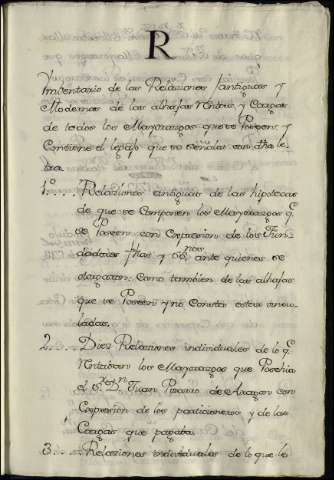 R
Ymbentario de las Relaziones antiguas y
Modernas de las alhajas Rentas y Cargas
de todos los Mayorazgos que se Poseen, y
Contiene el legajo que se señala con dha le
tra.
1º.... Relaziones antiguas de las hipotecas
de que se componen los Mayorazgos q.
se Poseen con Expresion de los Fun-
dadores fhas y ess.nos ante quienes se
otorgaron. Como tambien de las alhajas
que se Poseen y no Consta esten vincu-
ladas.
2.... Diez Relaziones individuales de lo q.
Rentaban los Mayorazgos que Posehia
el S.or D.n Juan de Aragon con
Expresion de los posesiones y de las
Cargas que pagaba.
3.... Relaziones individuales de lo que